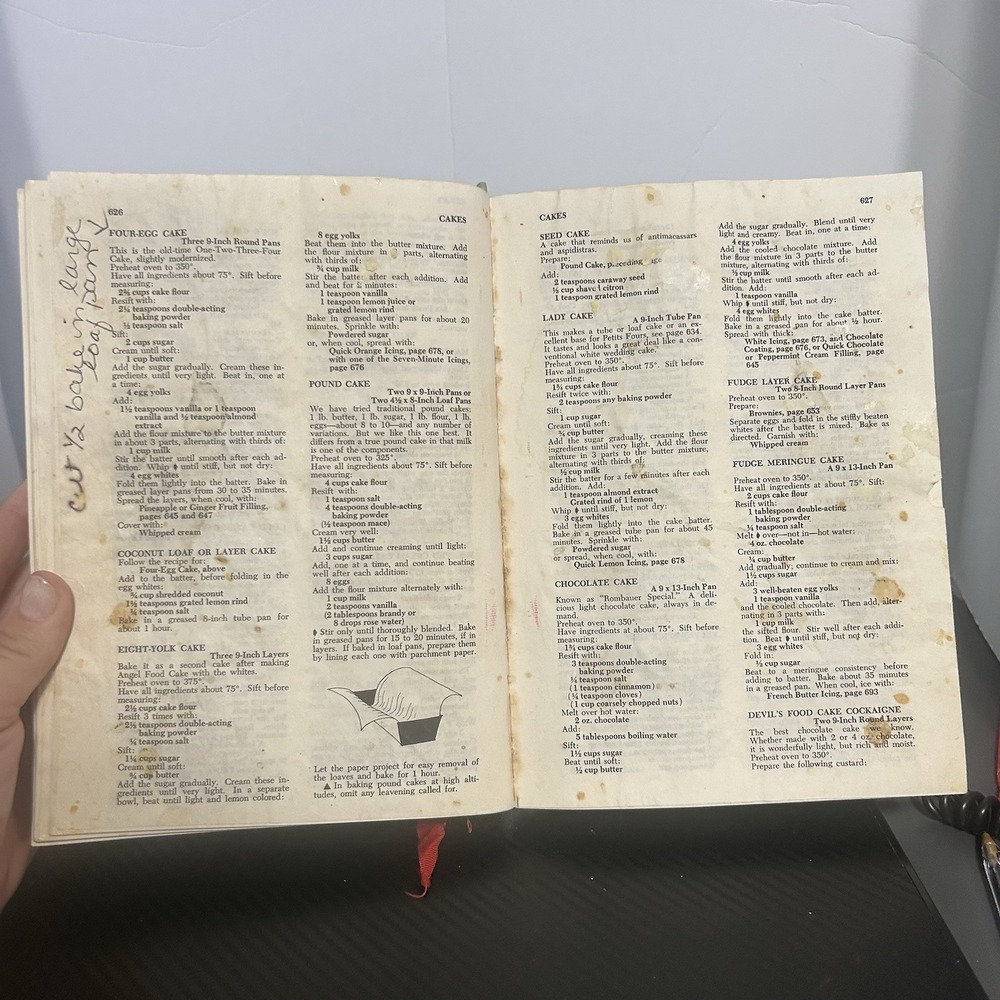 cut 1/2 bake in large
loaf pan
626
CAKES
FOUR-EGG CAKE
Three 9-Inch Round Pans
This is the old-time One-Two-Three-Four
Cake, slightly modernized.
Preheat oven to 350°.
Have all ingredients about 75°. Sift before
measuring:
2⅔ cups cake flour
Resift with:
2¼ teaspoons double-acting
baking powder
½ teaspoon salt
Sift:
2 cups sugar
Cream until soft:
1 cup butter
Add the sugar gradually. Cream these in-
gredients until very light. Beat in, one at
a time:
4 egg yolks
Add:
1½ teaspoons vanilla or 1 teaspoon
vanilla and ½ teaspoon almond
extract
Add the flour mixture to the butter mixture
in about 3 parts, alternating with thirds of:
1 cup milk
Stir the batter until smooth after each ad-
dition. Whip ♦ until stiff, but not dry:
4 egg whites
Fold them lightly into the batter. Bake in
greased layer pans from 30 to 35 minutes.
Spread the layers, when cool, with:
Pineapple or Ginger Fruit Filling,
pages 645 and 647
Cover with:
Whipped cream
COCONUT LOAF OR LAYER CAKE
Follow the recipe for:
Four-Egg Cake, above
Add to the batter, before folding in the
egg whites:
¾ cup shredded coconut
1½ teaspoons grated lemon rind
¼ teaspoon salt
Bake in a greased 8-inch tube pan for
about 1 hour.
EIGHT-YOLK CAKE
Three 9-Inch Layers
Bake it as a second cake after making
Angel Food Cake with the whites.
Preheat oven to 375°.
Have all ingredients about 75°. Sift before
measuring:
2½ cups cake flour
Resift 3 times with:
2½ teaspoons double-acting
baking powder
¼ teaspoon salt
Sift:
1¼ cups sugar
Cream until soft:
¾ cup butter
Add the sugar gradually. Cream these in-
gredients until very light. In a separate
bowl, beat until light and lemon colored:
8 egg yolks
Beat them into the butter mixture. Add
the flour mixture in 3 parts, alternating
with thirds of:
¾ cup milk
Stir the batter after each addition. Add
and beat for 2 minutes:
1 teaspoon vanilla
1 teaspoon lemon juice or
grated lemon rind
Bake in greased layer pans for about 20
minutes. Sprinkle with:
Powdered sugar
or, when cool, spread with:
Quick Orange Icing, page 678, or
with one of the Seven-Minute Icings,
page 676
POUND CAKE
Two 9 x 9-Inch Pans or
Two 4½ x 8-Inch Loaf Pans
We have tried traditional pound cakes:
1 lb. butter, 1 lb. sugar, 1 lb. flour, 1 lb.
eggs—about 8 to 10—and any number of
variations. But we like this one best. It
differs from a true pound cake in that milk
is one of the components.
Preheat oven to 325°.
Have all ingredients about 75°. Sift before
measuring:
4 cups cake flour
Resift with:
1 teaspoon salt
4 teaspoons double-acting
baking powder
(½ teaspoon mace)
Cream very well:
1½ cups butter
Add and continue creaming until light:
3 cups sugar
Add, one at a time, and continue beating
well after each addition:
8 eggs
Add the flour mixture alternately with:
1 cup milk
2 teaspoons vanilla
(2 tablespoons brandy or
8 drops rose water)
♦ Stir only until thoroughly blended. Bake
in greased pans for 15 to 20 minutes, if in
layers. If baked in loaf pans, prepare them
by lining each one with parchment paper.
Let the paper project for easy removal of
the loaves and bake for 1 hour.
▲ In baking pound cakes at high alti-
tudes, omit any leavening called for.
CAKES
627
SEED CAKE
A cake that reminds us of antimacassars
and aspidistras.
Prepare:
Pound Cake, preceding page
Add:
2 teaspoons caraway seed
⅓ cup shaved citron
1 teaspoon grated lemon rind
LADY CAKE
A 9-Inch Tube Pan
This makes a tube or loaf cake or an ex-
cellent base for Petits Fours, see page 634.
It tastes and looks a great deal like a con-
ventional white wedding cake.
Preheat oven to 350°.
Have all ingredients about 75°. Sift before
measuring:
1¾ cups cake flour
Resift twice with:
2 teaspoons any baking powder
Sift:
1 cup sugar
Cream until soft:
¾ cup butter
Add the sugar gradually, creaming these
ingredients until very light. Add the flour
mixture in 3 parts to the butter mixture,
alternating with thirds of:
½ cup milk
Stir the batter for a few minutes after each
addition. Add:
1 teaspoon almond extract
Grated rind of 1 lemon
Whip ♦ until stiff, but not dry:
3 egg whites
Fold them lightly into the cake batter.
Bake in a greased tube pan for about 45
minutes. Sprinkle with:
Powdered sugar
or spread, when cool, with:
Quick Lemon Icing, page 678
CHOCOLATE CAKE
A 9 x 13-Inch Pan
Known as "Rombauer Special." A deli-
cious light chocolate cake, always in de-
mand.
Preheat oven to 350°.
Have ingredients at about 75°. Sift before
measuring:
1¾ cups cake flour
Resift with:
3 teaspoons double-acting
baking powder
¼ teaspoon salt
(1 teaspoon cinnamon)
(¼ teaspoon cloves)
(1 cup coarsely chopped nuts)
Melt over hot water:
2 oz. chocolate
Add:
5 tablespoons boiling water
Sift:
1½ cups sugar
Beat until soft:
½ cup butter
Add the sugar gradually. Blend until very
light and creamy. Beat in, one at a time:
4 egg yolks
Add the cooled chocolate mixture. Add
the flour mixture in 3 parts to the butter
mixture, alternating with thirds of:
½ cup milk
Stir the batter until smooth after each ad-
dition. Add:
1 teaspoon vanilla
Whip ♦ until stiff, but not dry:
4 egg whites
Fold them lightly into the cake batter.
Bake in a greased pan for about ½ hour.
Spread with thick:
White Icing, page 673, and Chocolate
Coating, page 676, or Quick Chocolate
or Peppermint Cream Filling, page
645
FUDGE LAYER CAKE
Two 8-Inch Round Layer Pans
Preheat oven to 350°.
Prepare:
Brownies, page 653
Separate eggs and fold in the stiffly beaten
whites after the batter is mixed. Bake as
directed. Garnish with:
Whipped cream
FUDGE MERINGUE CAKE
A 9 x 13-Inch Pan
Preheat oven to 350°.
Have all ingredients at about 75°. Sift:
2 cups cake flour
Resift with:
1 tablespoon double-acting
baking powder
¼ teaspoon salt
Melt ♦ over—not in—hot water:
4 oz. chocolate
Cream:
¼ cup butter
Add gradually; continue to cream and mix:
1½ cups sugar
Add:
3 well-beaten egg yolks
1 teaspoon vanilla
and the cooled chocolate. Then add, alter-
nating in 3 parts with:
1 cup milk
the sifted flour. Stir well after each addi-
tion. Beat ♦ until stiff, but not dry:
3 egg whites
Fold in:
½ cup sugar
Beat to a meringue consistency before
adding to batter. Bake about 35 minutes
in a greased pan. When cool, ice with:
French Butter Icing, page 693
DEVIL'S FOOD CAKE COCKAIGNE
Two 9-Inch Round Layers
The best chocolate cake we know.
Whether made with 2 or 4 oz. chocolate,
it is wonderfully light, but rich and moist.
Preheat oven to 350°.
Prepare the following custard: